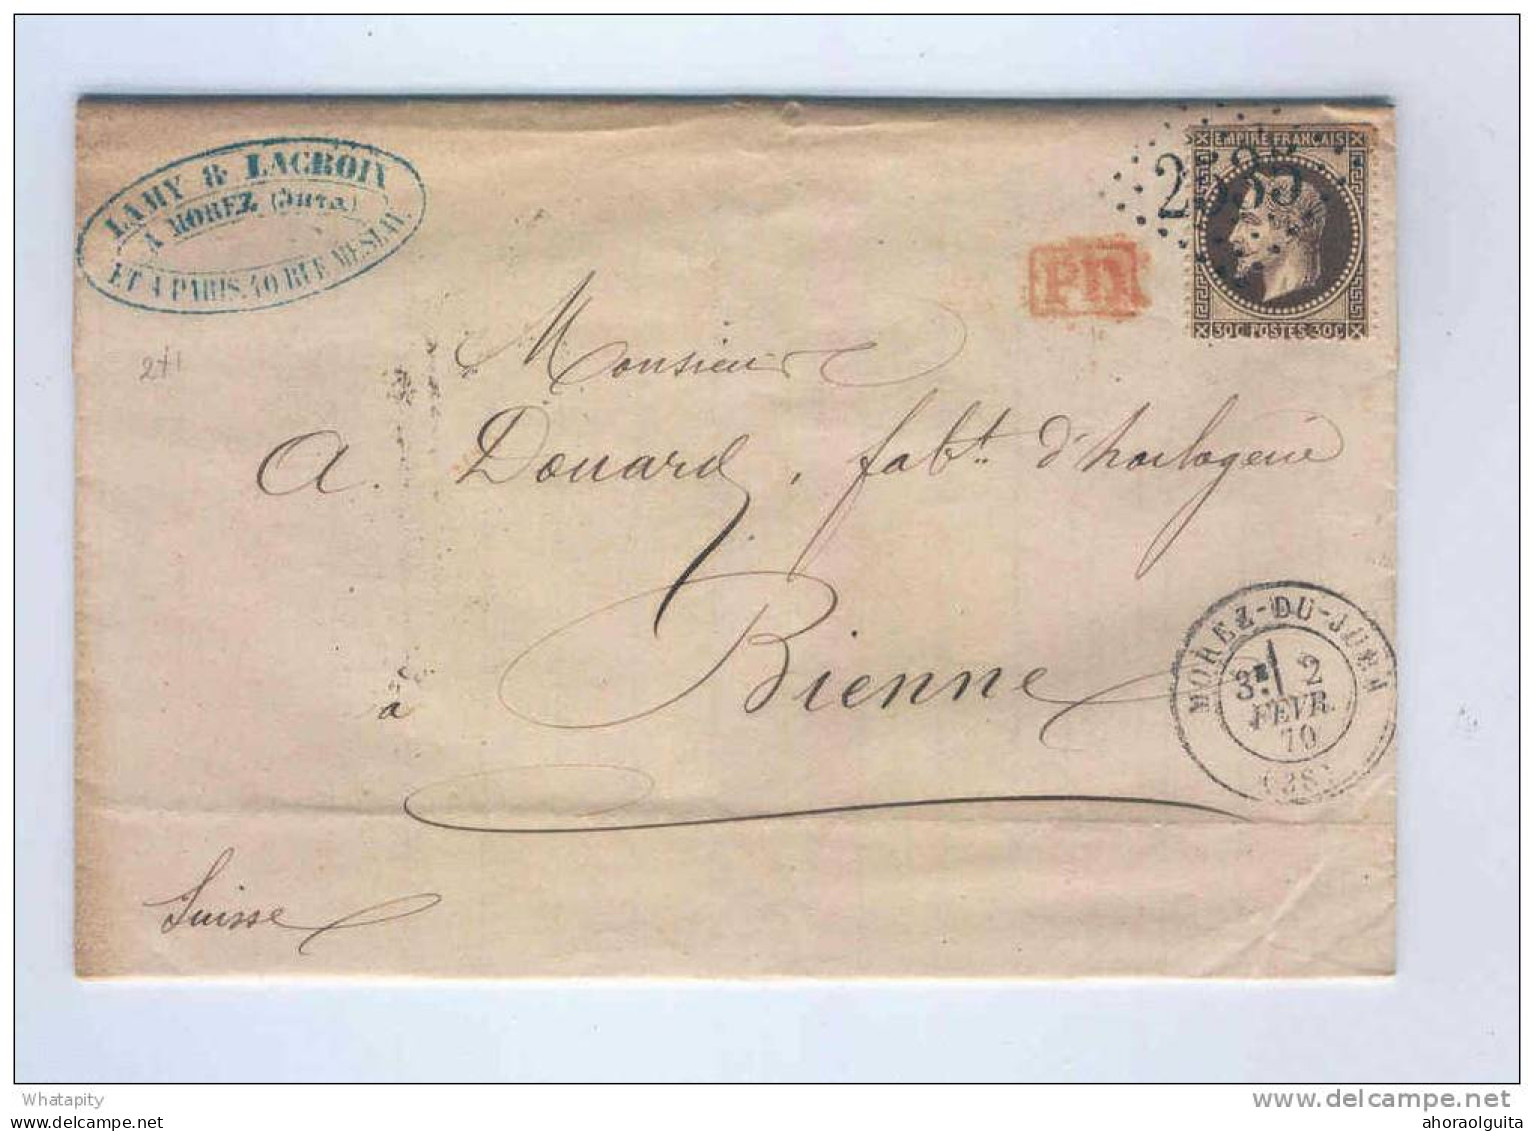 LAMY & LACROIX
A MOREZ (Jura)
ET A PARIS. 40 RUE MESLAY.
EMPIRE FRANÇAIS
30C POSTES 30C
PD
Monsieur
A. Douard, fabt. d'horlogerie
à Bienne
Suisse
MOREZ-DU-JURA
3E 2
FEVR.
70
(38)
Whatapity
delcampe.net
www.delcampe.net
ahoraolguita